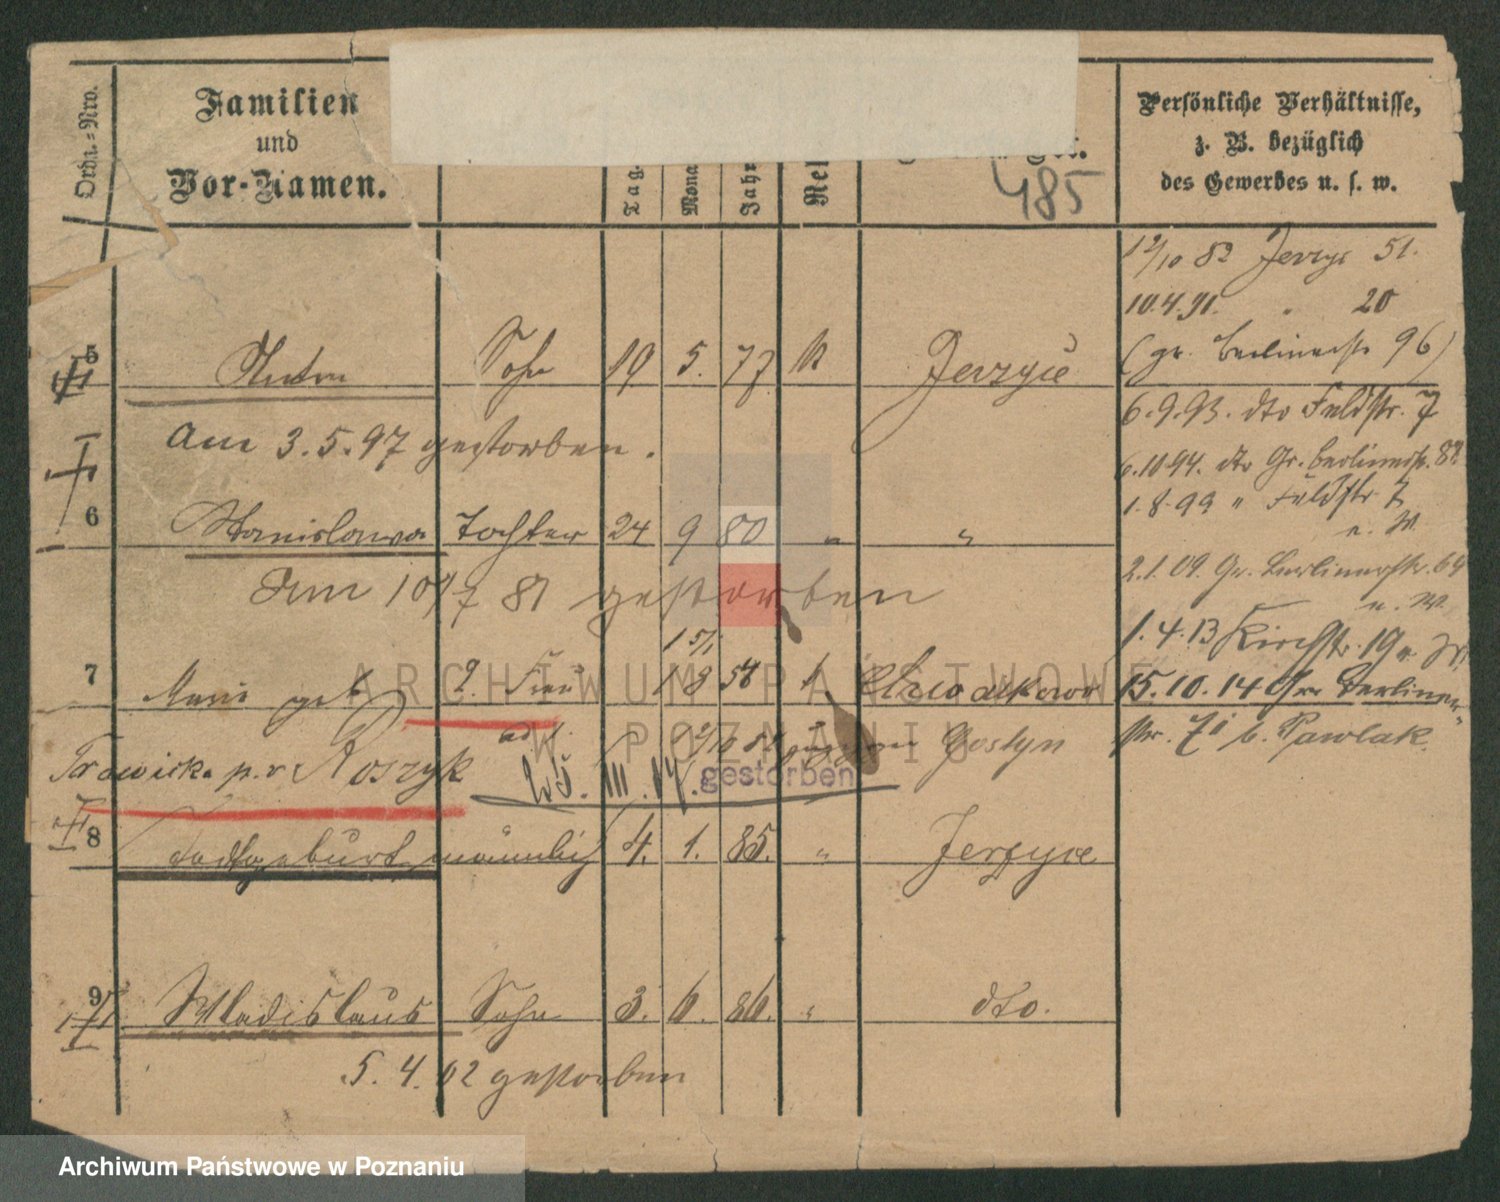 Ordn.=Nro.
Familien
und
Vor-Namen.
Tag.
Mona
Jahr
Rel
485
Persönliche Verhältnisse,
z. B. bezüglich
des Gewerbes u. s. w.
12/10 82 Jerzyc 51.
10.4.91. " 20
(gr. Berlinerstr 96)
5 Anton Sohn 19 5. 77 k Jerzyce
6.9.93. dto Feldstr. 7
Am 3.5.97 gestorben.
6.10.94. dto Gr. Berlinerstr. 82
1.8.99 " Feldstr 7
u. W
6 Stanislawa Tochter 24 9 80 " "
2.1.09. Gr. Berlinerstr. 69
u. W
Am 10/7 81 gestorben
1.4.13 Kirchstr. 19
7 Marie geb. 2. Frau 18 58
15.10.14 Gr. Berliner-
str. 71 b. Pawlak.
p. v. Roszyk Gostyn
25. III. 17. gestorben
8 Todtgeburt männlich 4. 1. 85. " Jerzyce
9 Wladislaus Sohn 3. 6. 86. " dto.
5.4.02 gestorben
ARCHIWUM PAŃSTWOWE
W POZNANIU
Archiwum Państwowe w Poznaniu